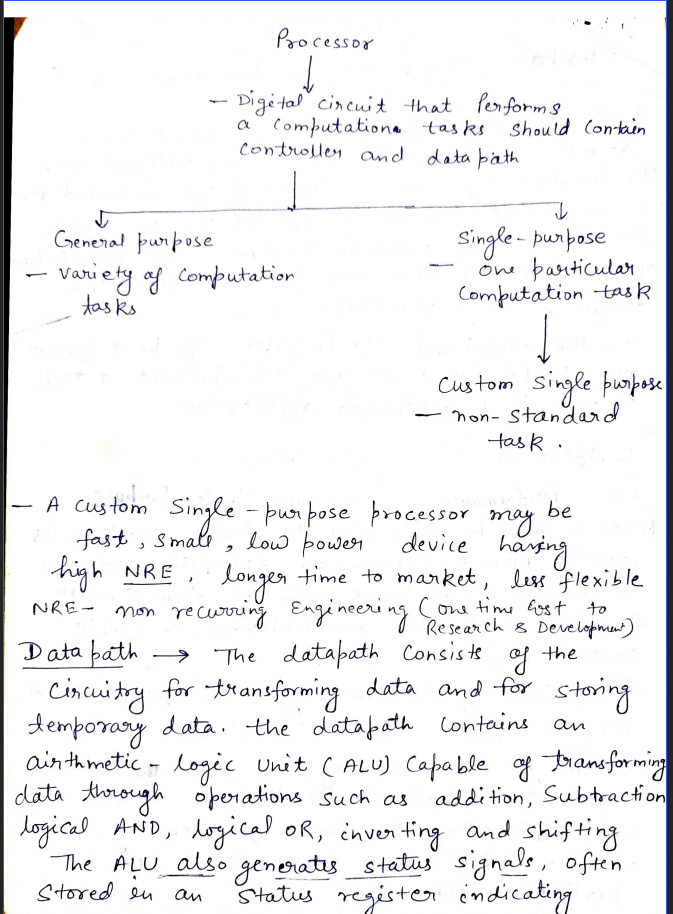 Processor
- Digital circuit that performs
a computation tasks should contain
controller and data path
General purpose
- Variety of computation
tasks
Single-purpose
- one particular
Computation task
Custom Single purpose
- non-standard
task.
- A custom Single-purpose processor may be
fast, small, low power device having
high NRE, longer time to market, less flexible
NRE- non recurring Engineering (one time cost to
Research & Development)
Data path → The datapath consists of the
Circuitry for transforming data and for storing
temporary data. the datapath contains an
airthmetic-logic unit (ALU) Capable of transforming
data through operations such as addition, Subtraction
logical AND, logical OR, inverting and shifting
The ALU also generates status signals, often
Stored in an status register indicating